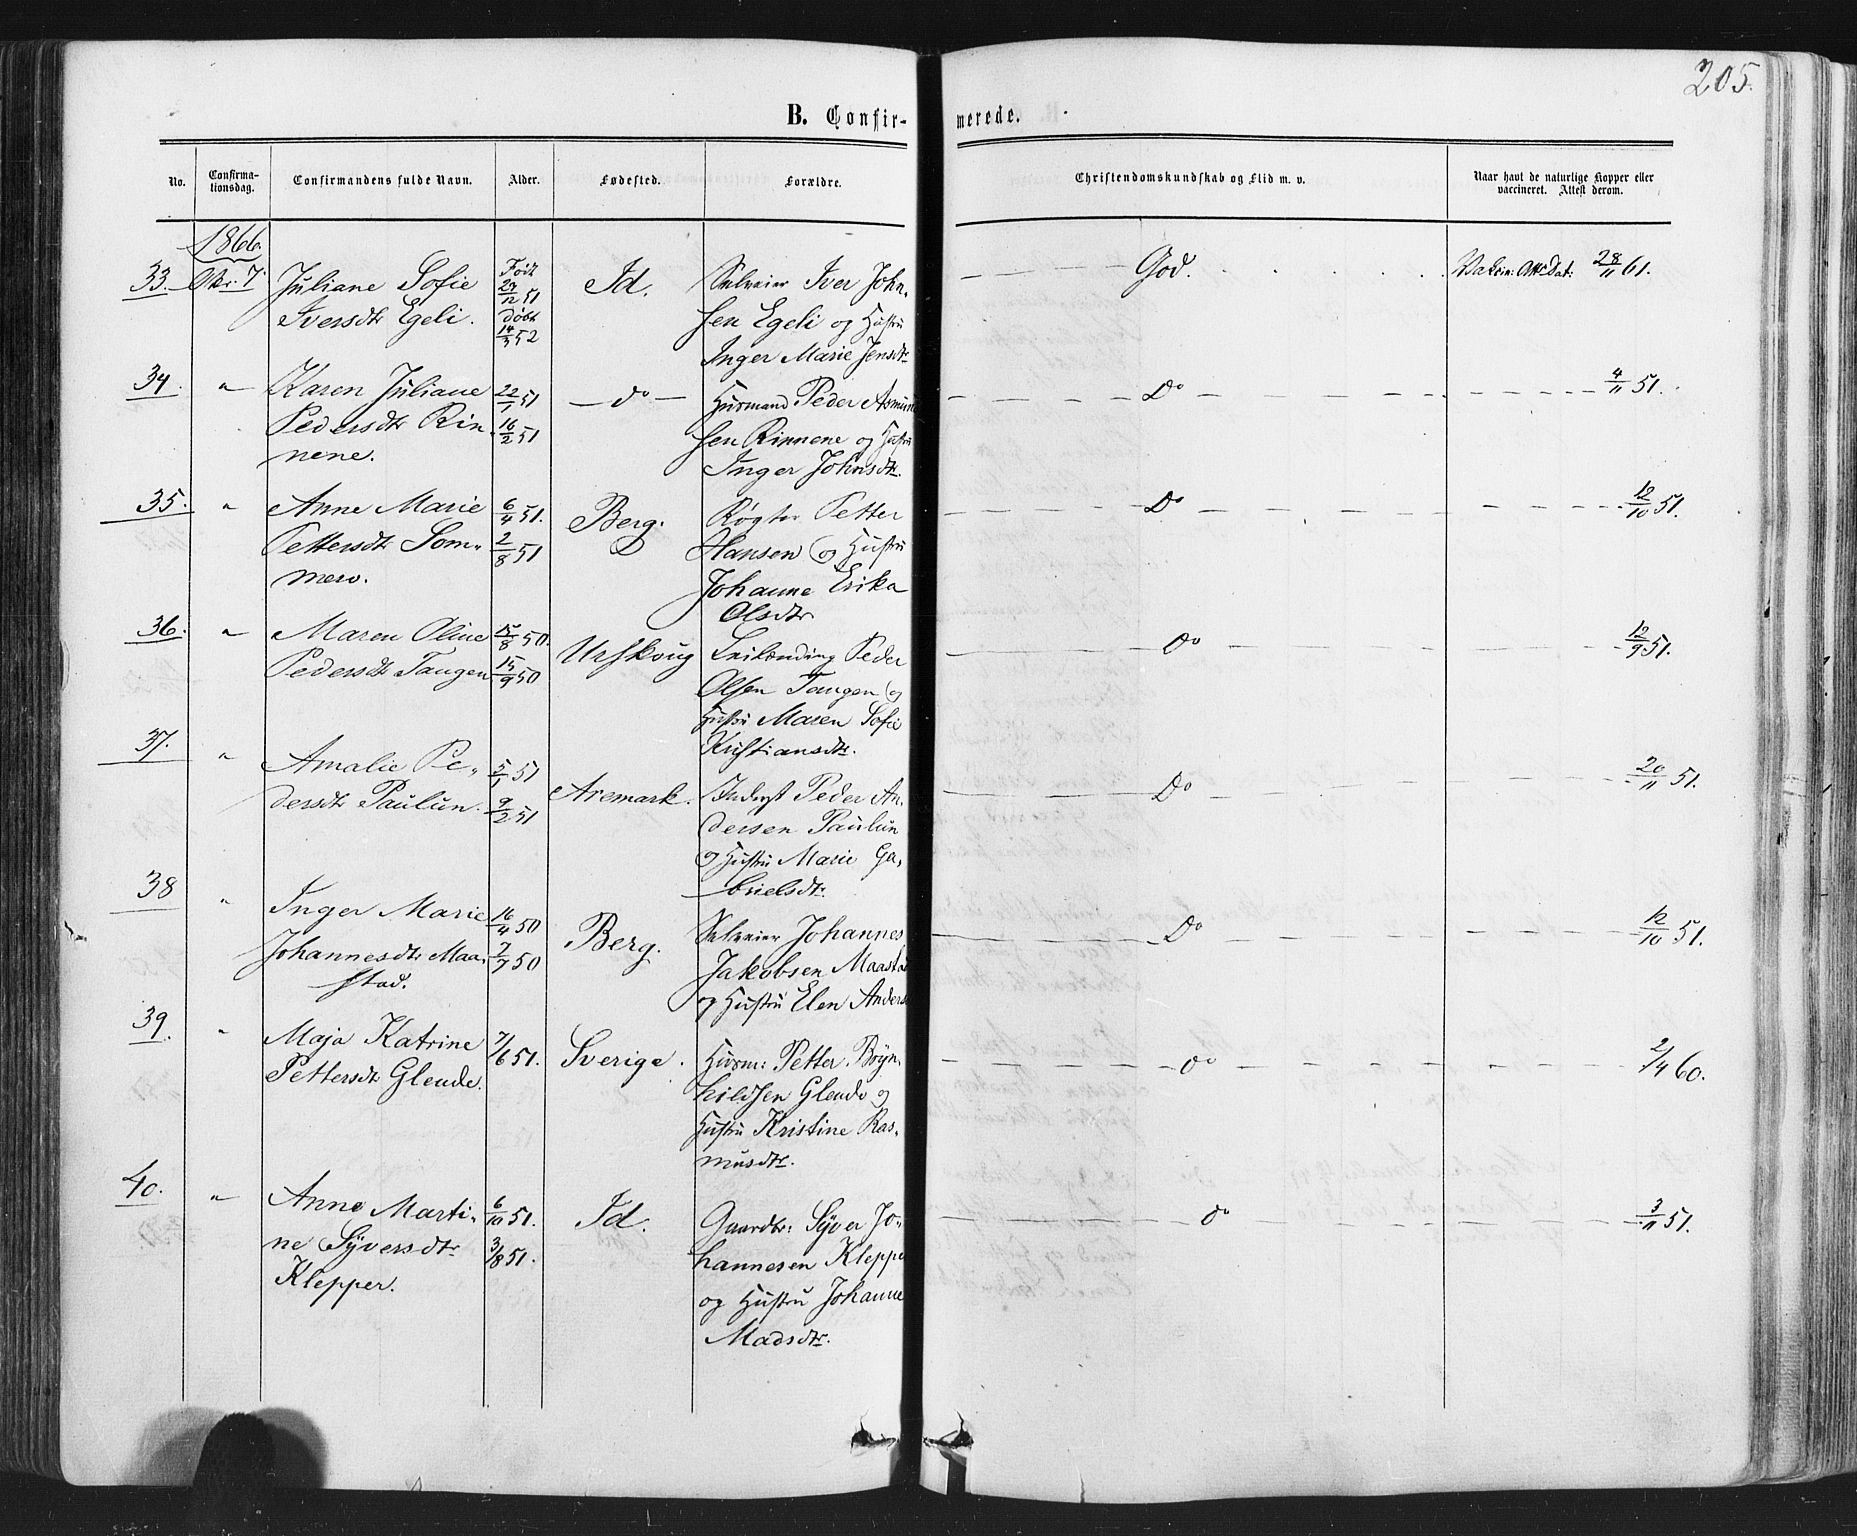 205.
B. Confir- merede.
No. Confirma-tionsdag. Confirmandens fulde Navn. Alder. Fødested. Forældre. Christendomskundskab og Flid m. v. Naar havt de naturlige Kopper eller vaccineret. Attest derom.
1866.
33. Okr. 7. Juliane Sofie Iversdtr Egeli. Født 29/12 51 døbt 14/3 52 Id. Selveier Iver John-
sen Egeli og Hustru
Inger Marie Jensdtr God. Vakcin: Att: Dat: 28/11 61.
34. " Karen Juliane
Pedersdtr Rin-
nene. 22/1 51 16/2 51 — do — Husmand Peder Asmund
sen Rinnene og Hustru
Inger Johnsdtr. Do 4/11 51.
35. " Anne Marie
Pettersdtr Som-
mero. 6/4 51. 2/8 51 Berg. Røgter Petter
Hansen og Hustru
Johanne Erika
Olsdtr Do 12/10 51.
36. " Maren Oline
Pedersdtr Tangen 15/8 50. 15/9 50 Urskoug Leilænding Peder
Olsen Tangen og
Hustru Maren Sofie
Kristiansdtr. Do 12/9 51.
37. " Amalie Pe-
dersdtr Paulun. 5/1 51 9/2 51 Aremark. Inderst Peder An-
dersen Paulun
og Hustru Marie Ga-
brielsdtr. Do 20/11 51.
38 " Inger Marie
Johannesdtr Maa-
stad. 16/4 50 7/7 50 Berg. Selveier Johannes
Jakobsen Maastad
og Hustru Elen Anders Do 12/10 51.
39. " Maja Katrine
Pettersdtr Glende. 7/6 51. Sverige. Husm: Petter Bryn-
hildsen Glende og
Hustru Kristine Ras-
musdtr. Do 2/4 60.
40. " Anne Marti-
ne Syversdtr
Klepper. 6/10 51. 3/8 51. Id. Gaardbr: Syver Jo-
hannesen Klepper
og Hustru Johanne
Madsdtr. Do 3/11 51.